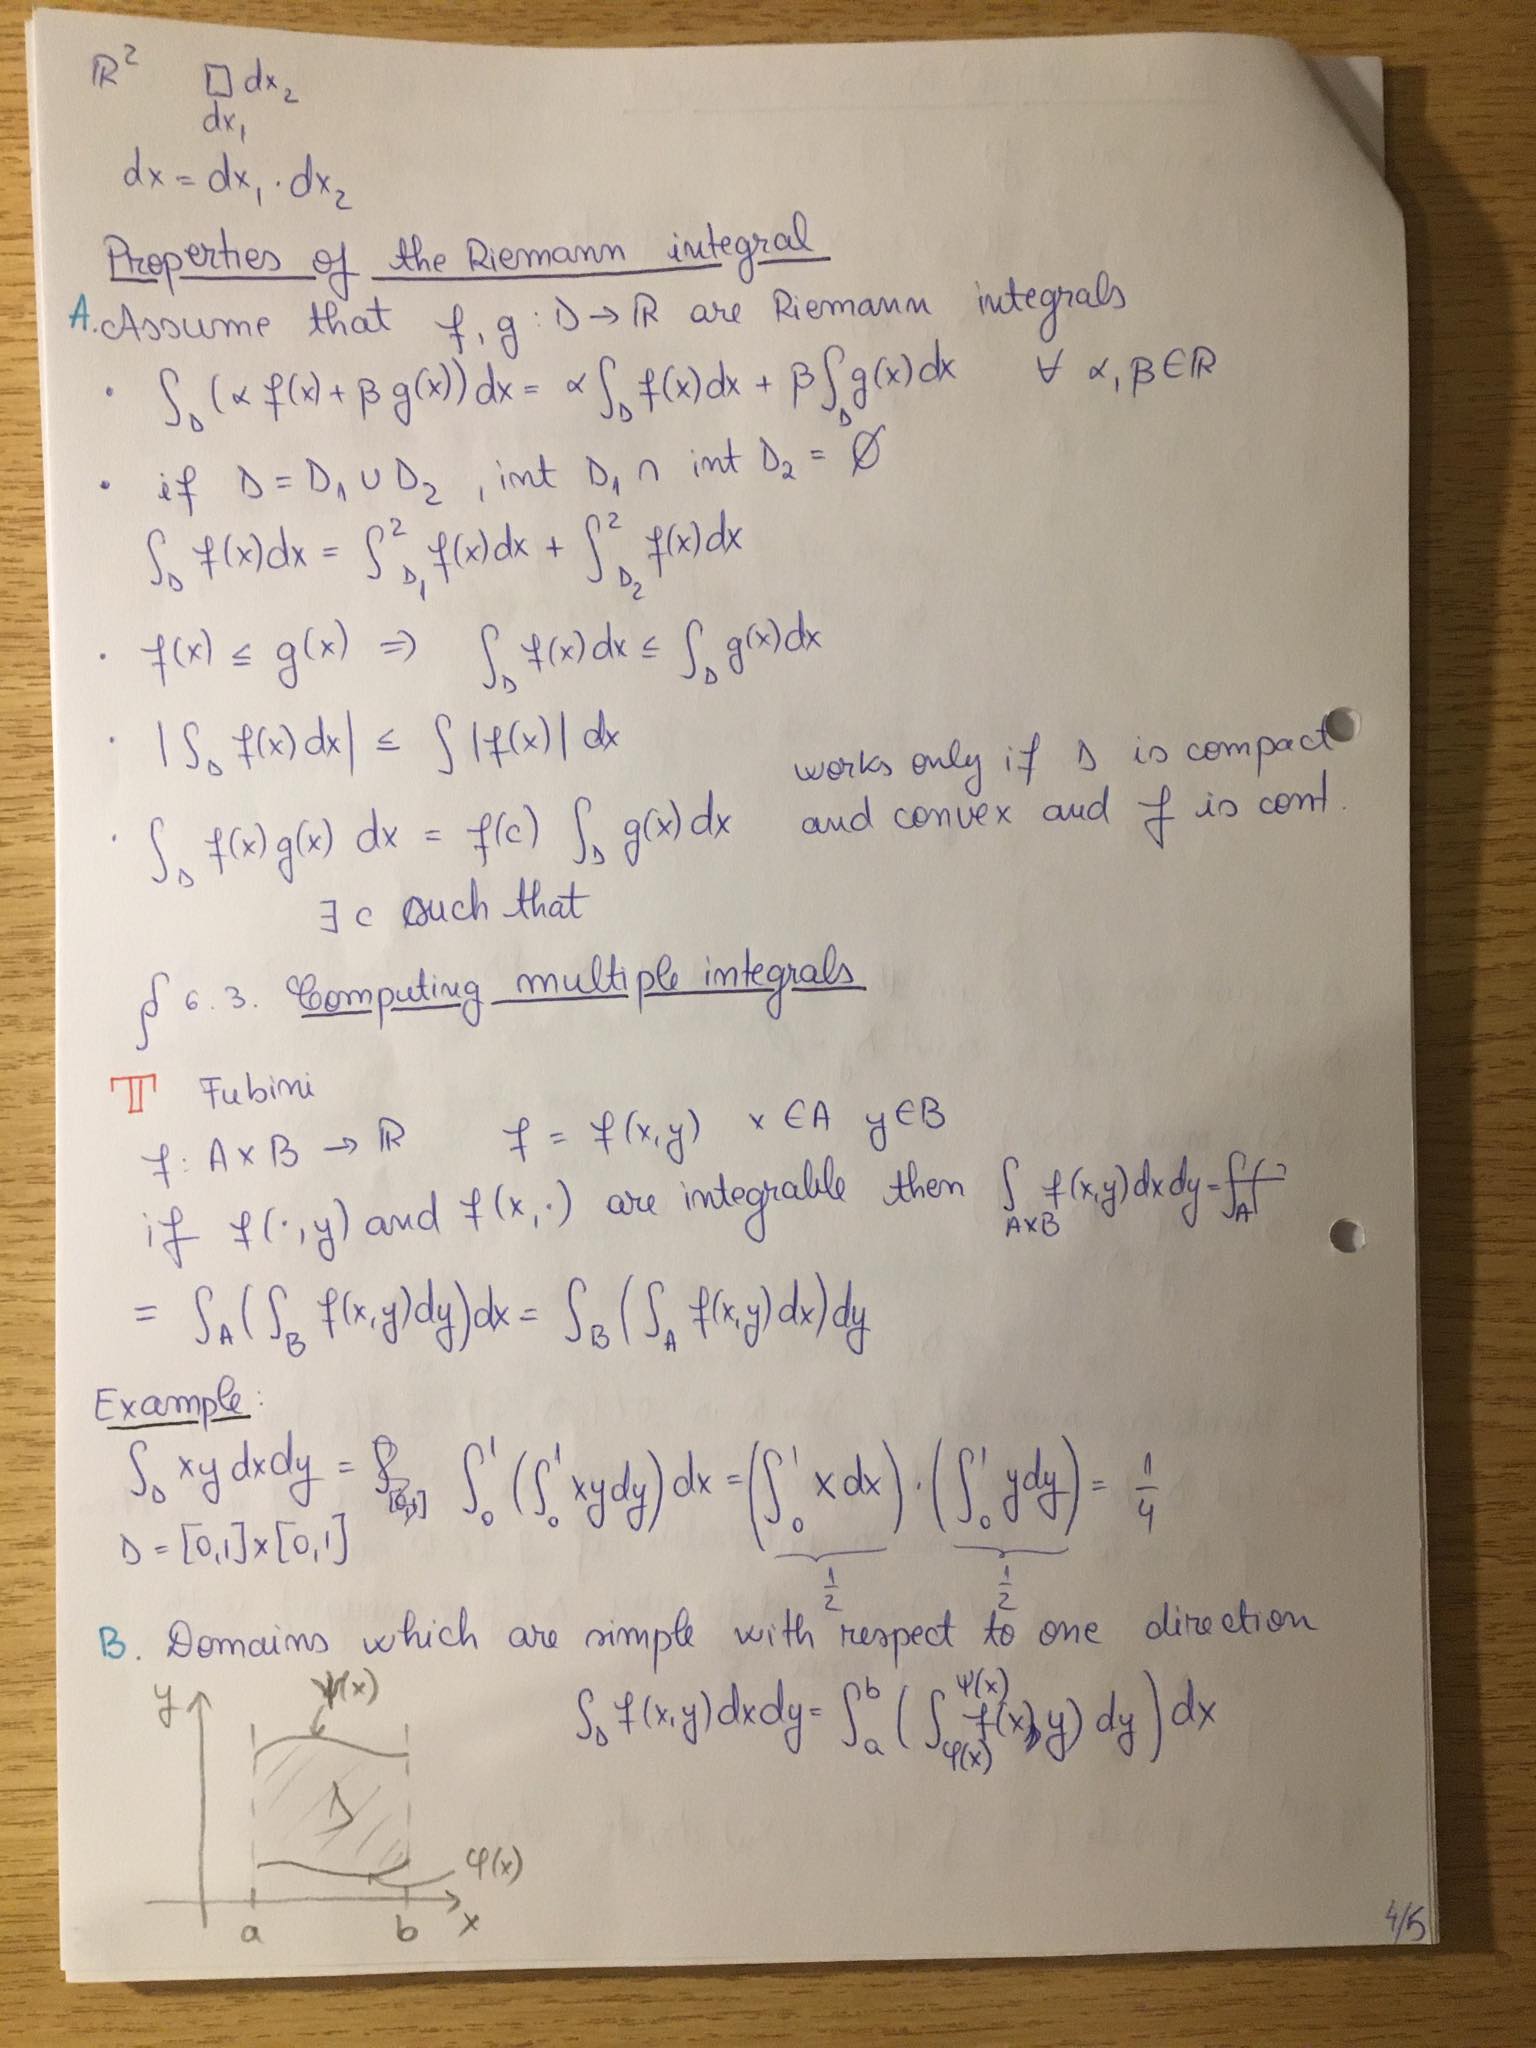 ℝ² □ dx₂
dx₁
dx = dx₁ · dx₂
Properties of the Riemann integral
A. Assume that f, g : D → ℝ are Riemann integrals
· ∫_D (α f(x) + β g(x)) dx = α ∫_D f(x) dx + β ∫_D g(x) dx ∀ α, β ∈ ℝ
· if D = D₁ ∪ D₂ , int D₁ ∩ int D₂ = ∅
∫_D f(x) dx = ∫²_D₁ f(x) dx + ∫²_D₂ f(x) dx
· f(x) ≤ g(x) ⇒ ∫_D f(x) dx ≤ ∫_D g(x) dx
· |∫_D f(x) dx| ≤ ∫ |f(x)| dx
works only if D is compact
and convex and f is cont.
· ∫_D f(x) g(x) dx = f(c) ∫_D g(x) dx
∃ c such that
§ 6.3. Computing multiple integrals
T Fubini
f : A × B → ℝ f = f(x,y) x ∈ A y ∈ B
if f(·,y) and f(x,·) are integrable then ∫_{A×B} f(x,y) dx dy =
= ∫_A (∫_B f(x,y) dy) dx = ∫_B (∫_A f(x,y) dx) dy
Example:
∫_D xy dx dy = ∫₀¹ (∫₀¹ xy dy) dx = (∫₀¹ x dx) · (∫₀¹ y dy) = 1/4
D = [0,1] × [0,1]
1/2 1/2
B. Domains which are simple with respect to one direction
y ψ(x)
∫_D f(x,y) dx dy = ∫_a^b (∫_{φ(x)}^{ψ(x)} f(x,y) dy) dx
D
φ(x)
a b x
4/5